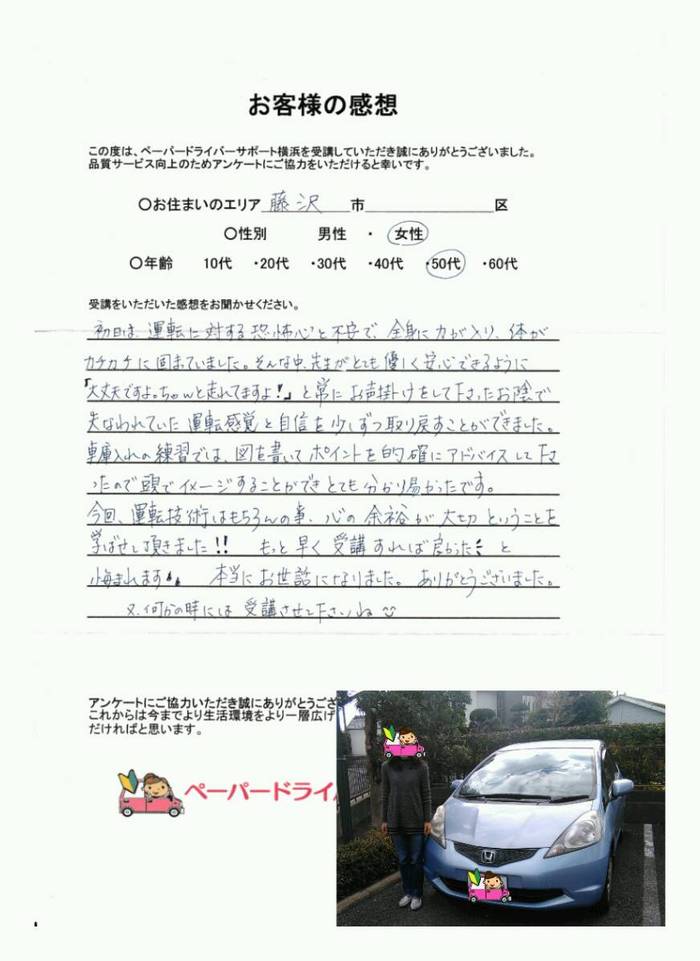 お客様の感想
この度は、ペーパードライバーサポート横浜を受講していただき誠にありがとうございました。
品質サービス向上のためアンケートにご協力をいただけると幸いです。
〇お住まいのエリア 藤沢 市 区
〇性別 男性 ・ 女性
〇年齢 10代 ・20代 ・30代 ・40代 ・50代 ・60代
受講をいただいた感想をお聞かせください。
初日は、運転に対する恐怖心と不安で、全身に力が入り、体が
カチカチに固まていました。そんな中、先生がとても優しく安心できるように
「大丈夫ですよ。ちゃんと走れてますよ!」と常にお声掛けをして下さったお陰で
失なわれていた運転感覚と自信を少しずつ取り戻すことができました。
車庫入れの練習では、図を書いてポイントを的確にアドバイスして下さ
ったので頭でイメージすることができとても分かり易かったです。
今回、運転技術はもちろんの事、心の余裕が大切ということを
学ばせて頂きました!! もっと早く受講すれば良かった と
悔まれます 本当にお世話になりました。ありがとうございました。
又、何かの時には受講させて下さいね
アンケートにご協力いただき誠にありがとうござ
これからは今までより生活環境をより一層広げ
だければと思います。
ペーパードライバ